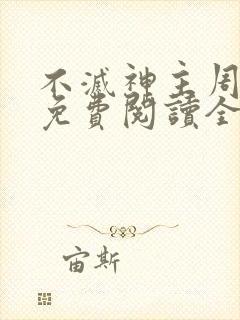 不滅神主周
免費閱讀全
宙斯